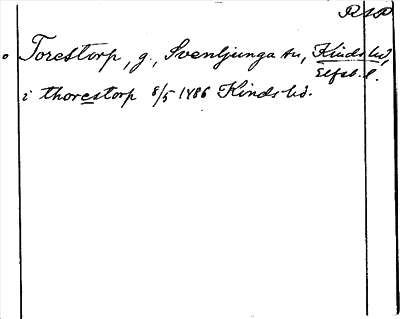 RAP
Torestorp, g., Svenljunga sn, Kinds hd,
Elfsb. l.
i thorestorp 8/5 1486 Kinds hd.